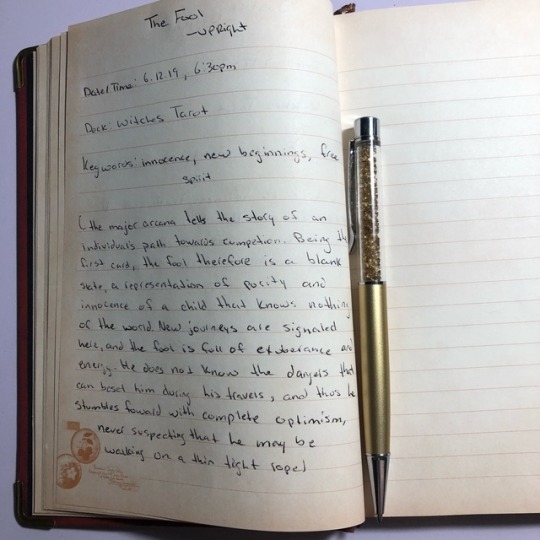 The Fool
—UPRight
Date/Time: 6.12.19, 6:30pm
Deck: Witches Tarot
Keywords: innocence, new beginnings, free
spirit
(the major arcana tells the story of an
individuals path towards competion. Being the
first card, the fool therefore is a blank
slate, a representation of purity and
innocence of a child that knows nothing
of the world. New journeys are signaled
here, and the fool is full of exuberance and
energy. He does not know the dangers that
can beset him during his travels, and thus he
stumbles foward with complete optimism,
never suspecting that he may be
walking on a thin tight rope)